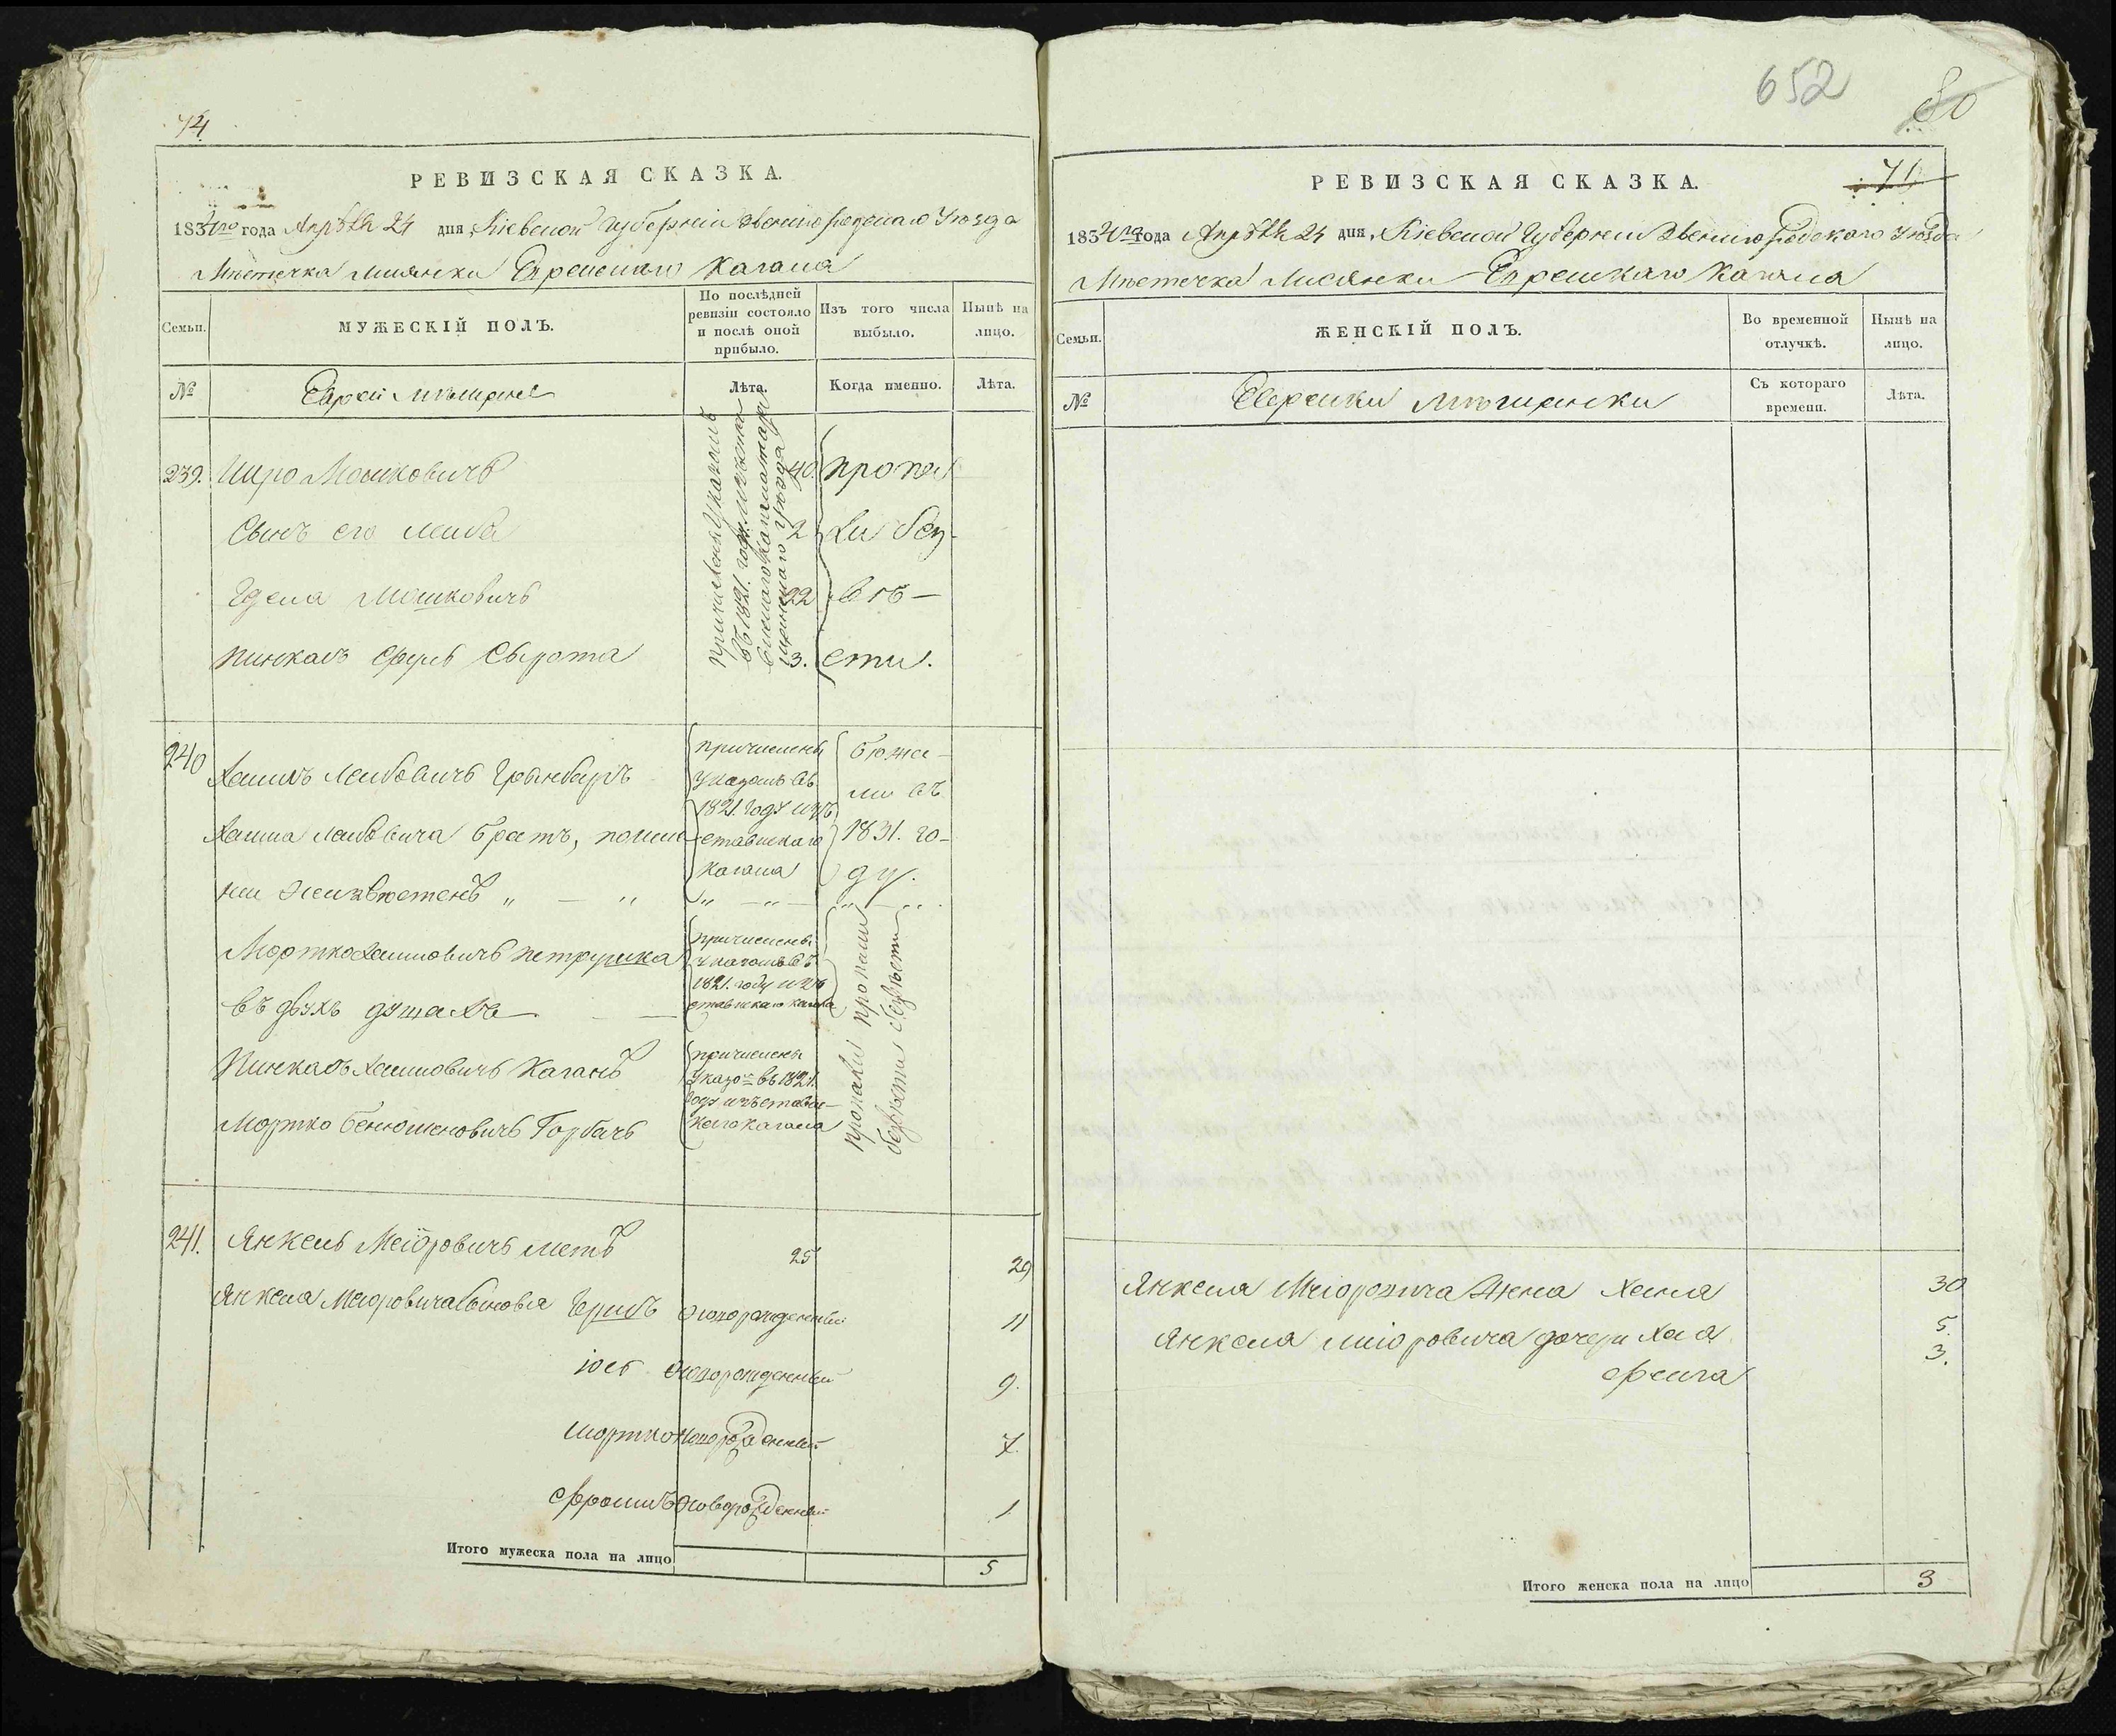 74
РЕВИЗСКАЯ СКАЗКА.
1834го года Апрѣля 24 дня, Кіевской Губерніи Звенигородскаго Уѣзда
Мѣстечка Лисянки Еврейскаго Кагала
Семьи.
МУЖЕСКІЙ ПОЛЪ.
По послѣдней ревизіи состояло и послѣ оной прибыло.
Изъ того числа выбыло.
Нынѣ на лицо.
№
Евреи Мѣщане
Лѣта.
Когда именно.
Лѣта.
239. Широ Мошковичъ 40. пропа
Сынъ его Лейба 2 ли без
Мошковичъ 22 вѣ—
Пинхасъ Сырота 3. сти.
причислены указомъ
въ 1821. году
240 Хаимъ Лейбовичъ Гринбаръ
причислены указомъ въ 1821. году изъ ставискаго кагала
бежали въ 1831. году.
Хаима Лейбовича братъ,
" — "
Мортко Хаимовичъ Петрушка
въ двухъ душахъ
причислены указомъ въ 1821. году изъ ставискаго кагала
пропали безвѣсти
Пинхасъ Хаимовичъ Каганъ
Мортко Бенюменовичъ Горбачъ
причислены указомъ въ 1821. году изъ ставискаго кагала
пропали безвѣсти
241. Янкель Меіоровичъ 25 29
Янкеля Меіоровича сыновья Гершъ новорожденный 11
Іосъ новорожденный 9.
Мортко новорожденный 7.
Фроимъ новорожденный 1
Итого мужеска пола на лицо 5
652
80
71
РЕВИЗСКАЯ СКАЗКА.
1834го года Апрѣля 24 дня, Кіевской Губерніи Звенигородскаго Уѣзда
Мѣстечка Лисянки Еврейскаго Кагала
Семьи.
ЖЕНСКІЙ ПОЛЪ.
Во временной отлучкѣ.
Нынѣ на лицо.
№
Еврейки Мѣщанки
Съ котораго времени.
Лѣта.
Янкеля Меіоровича жена Хана 30
Янкеля Меіоровича дочери Хая 5.
Фейга 3.
Итого женска пола на лицо 3